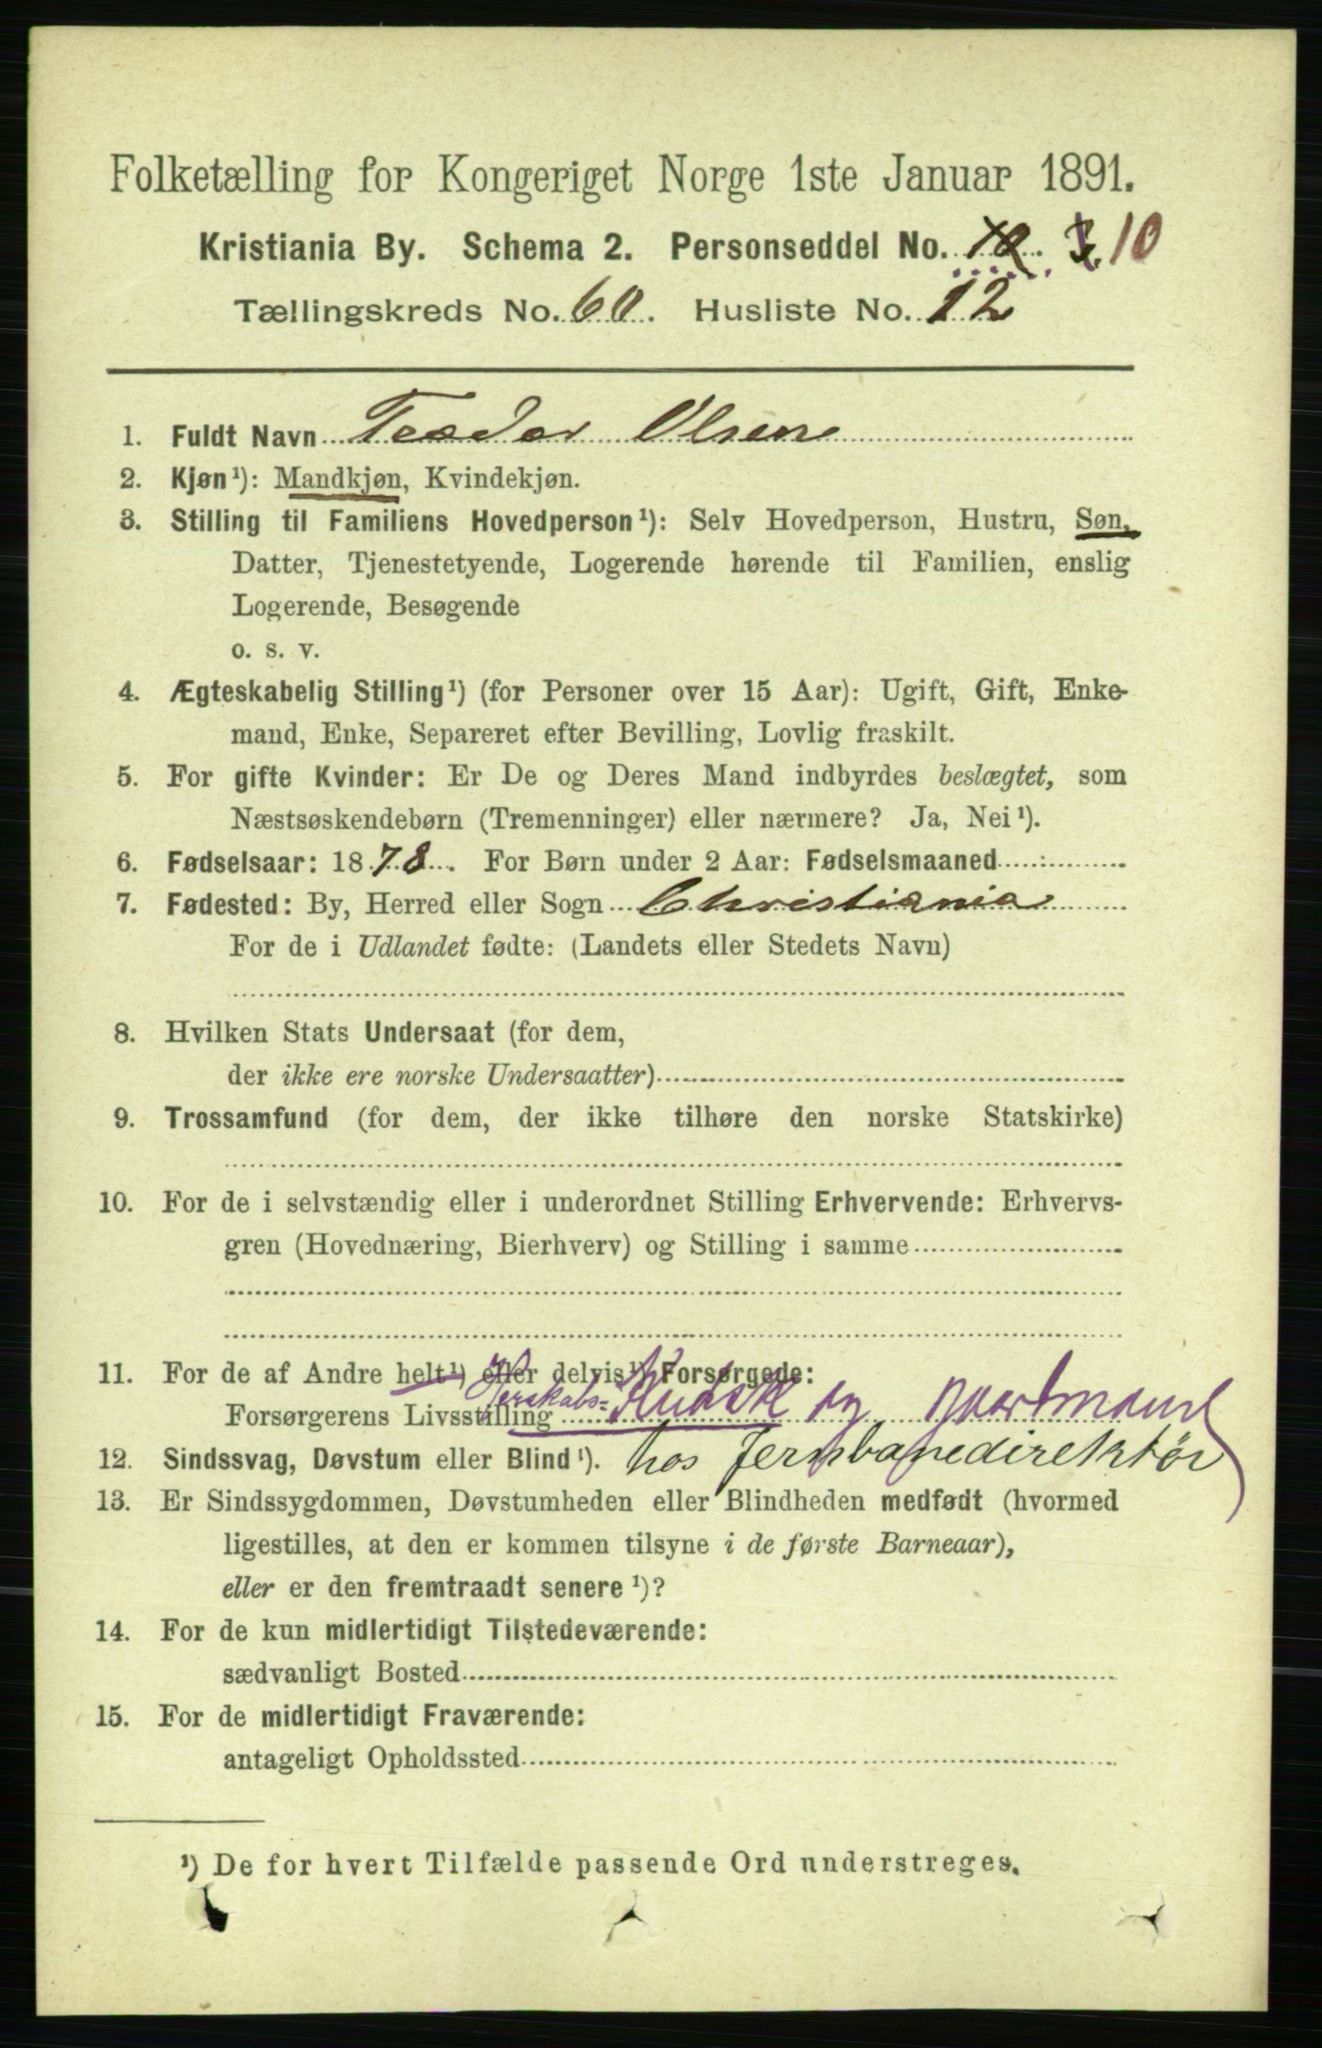 Folketælling for Kongeriget Norge 1ste Januar 1891.
Kristiania By. Schema 2. Personseddel No. 10
Tællingskreds No. 60. Husliste No. 12
1. Fuldt Navn Teodor Olsen
2. Kjøn¹): Mandkjøn, Kvindekjøn.
3. Stilling til Familiens Hovedperson¹): Selv Hovedperson, Hustru, Søn,
Datter, Tjenestetyende, Logerende hørende til Familien, enslig
Logerende, Besøgende
o. s. v.
4. Ægteskabelig Stilling¹) (for Personer over 15 Aar): Ugift, Gift, Enke-
mand, Enke, Separeret efter Bevilling, Lovlig fraskilt.
5. For gifte Kvinder: Er De og Deres Mand indbyrdes beslægtet, som
Næstsøskendebørn (Tremenninger) eller nærmere? Ja, Nei¹).
6. Fødselsaar: 1878. For Børn under 2 Aar: Fødselsmaaned
7. Fødested: By, Herred eller Sogn Christiania
For de i Udlandet fødte: (Landets eller Stedets Navn)
8. Hvilken Stats Undersaat (for dem,
der ikke ere norske Undersaatter)
9. Trossamfund (for dem, der ikke tilhøre den norske Statskirke)
10. For de i selvstændig eller i underordnet Stilling Erhvervende: Erhvervs-
gren (Hovednæring, Bierhverv) og Stilling i samme
11. For de af Andre helt¹) eller delvis¹) Forsørgede:
Forsørgerens Livsstilling Herskabs= Kudsk og
12. Sindssvag, Døvstum eller Blind¹). hos Jernbanedirektør
13. Er Sindssygdommen, Døvstumheden eller Blindheden medfødt (hvormed
ligestilles, at den er kommen tilsyne i de første Barneaar),
eller er den fremtraadt senere¹)?
14. For de kun midlertidigt Tilstedeværende:
sædvanligt Bosted
15. For de midlertidigt Fraværende:
antageligt Opholdssted
¹) De for hvert Tilfælde passende Ord understreges.